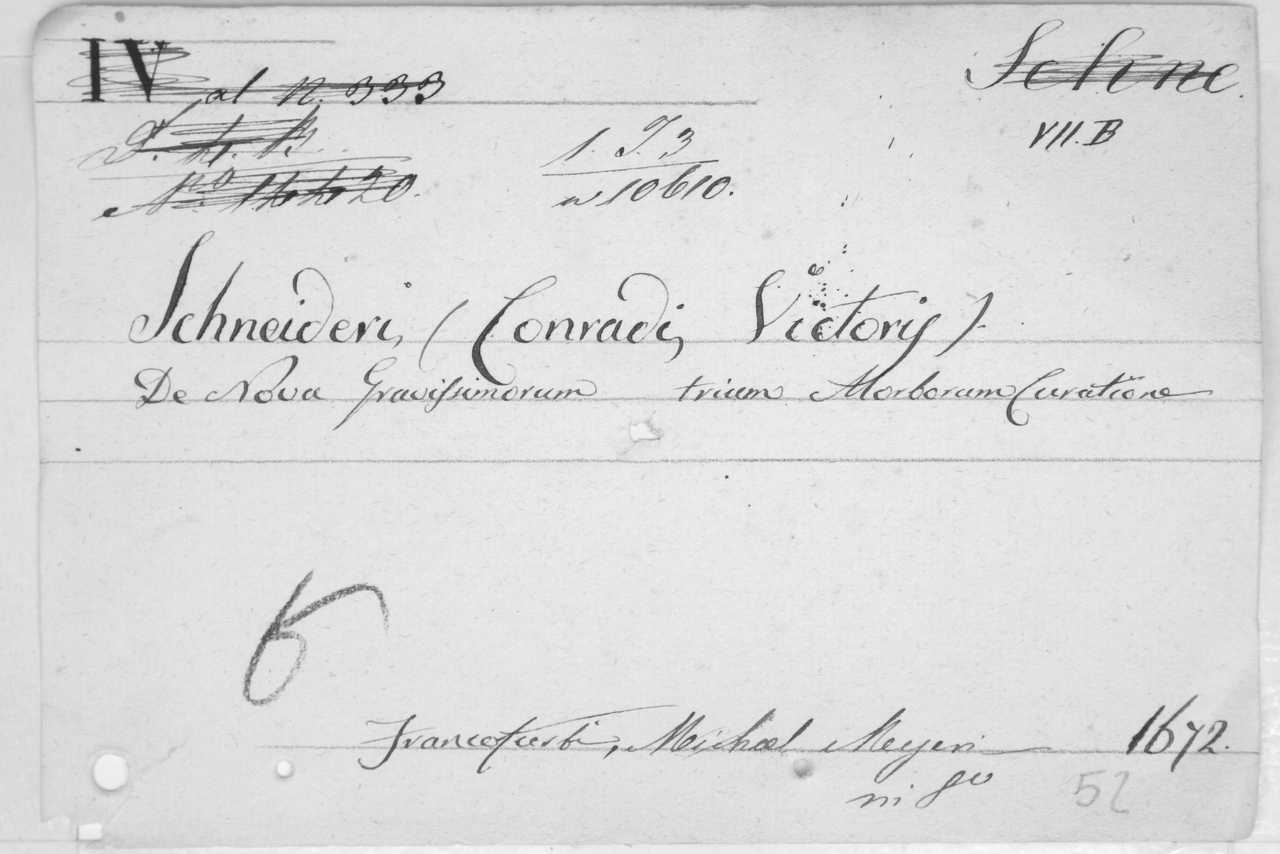 IV al n. 333
Schne.
VII. B
1. J. 3
n 10610.
No 14420.
Schneideri, (Conradi, Victoris)
De Nova Gravissimorum trium Morborum Curatione
6
Francofurti, Michael Meyeri 1672.
in 8o
52